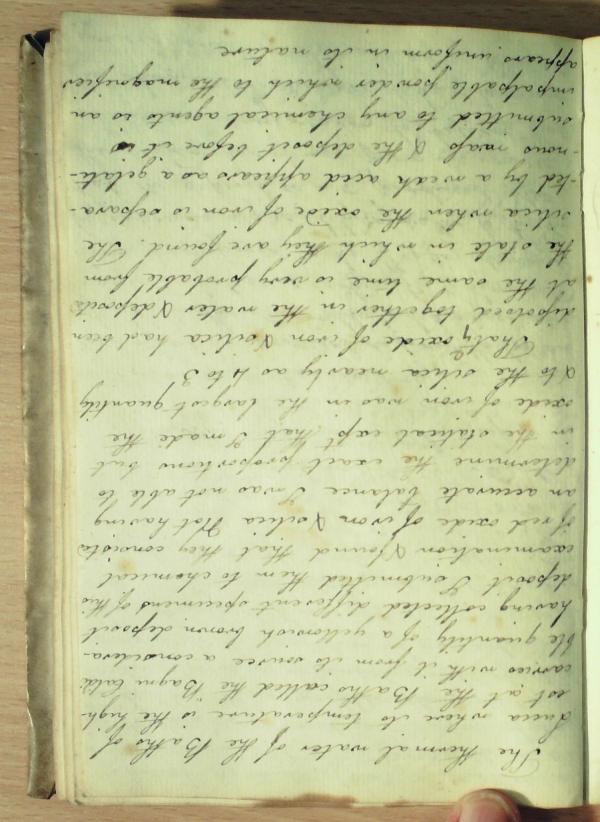 The thermal water of the Baths of
Lucca where its temperature is the high-
est at the Baths called the Bagni Caldi
carries with it from its source a considera-
ble quantity of a yellowish brown deposit
having collected different specimens of this
deposit I submitted them to chemical
examination & found that they consists
of red oxide of iron & silica Not having
an accurate balance I was not able to
determine the exact proportions but
in the statical expt that I made the
oxide of iron was in the largest quantity
& to the silica nearly as 4 to 3
That oxide of iron & silica had been
dissolved together in the water & deposited
at the same time is very probable from
the state in which they are found. The
silica when the oxide of iron is separa-
-ted by a weak acid appears as a gelati-
-nous mass & the deposit before it is
submitted to any chemical agents is an
impalpable powder which to the magnifier
appears uniform in its nature